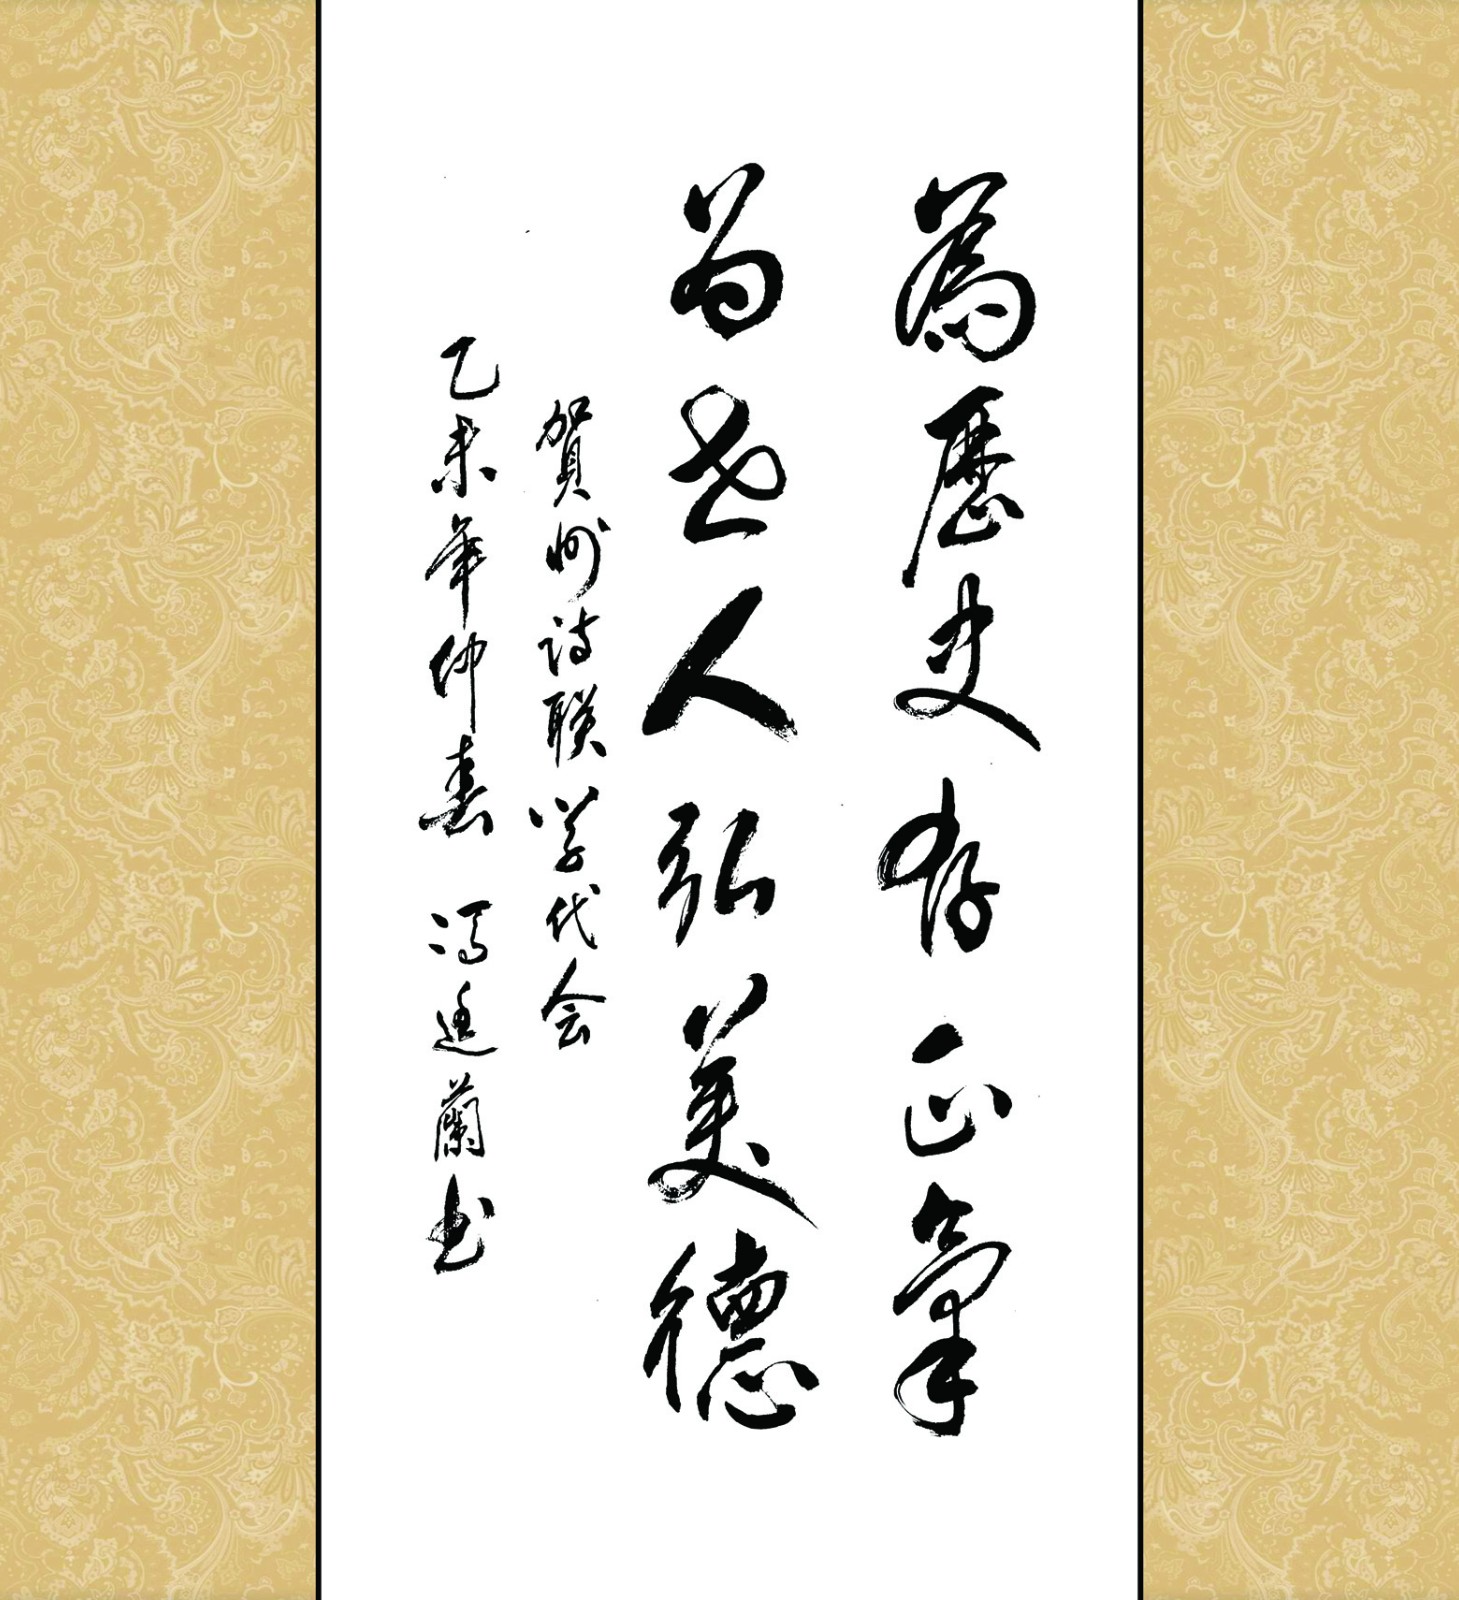 為歷史存正氣
为世人弘美德
賀州诗联学代会
乙未年仲春 冯逸蘭书